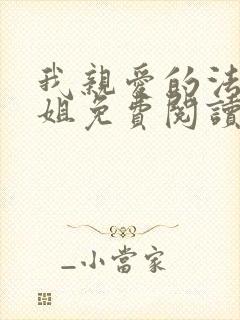 我親愛的法
姐免費閱讀
_小當家